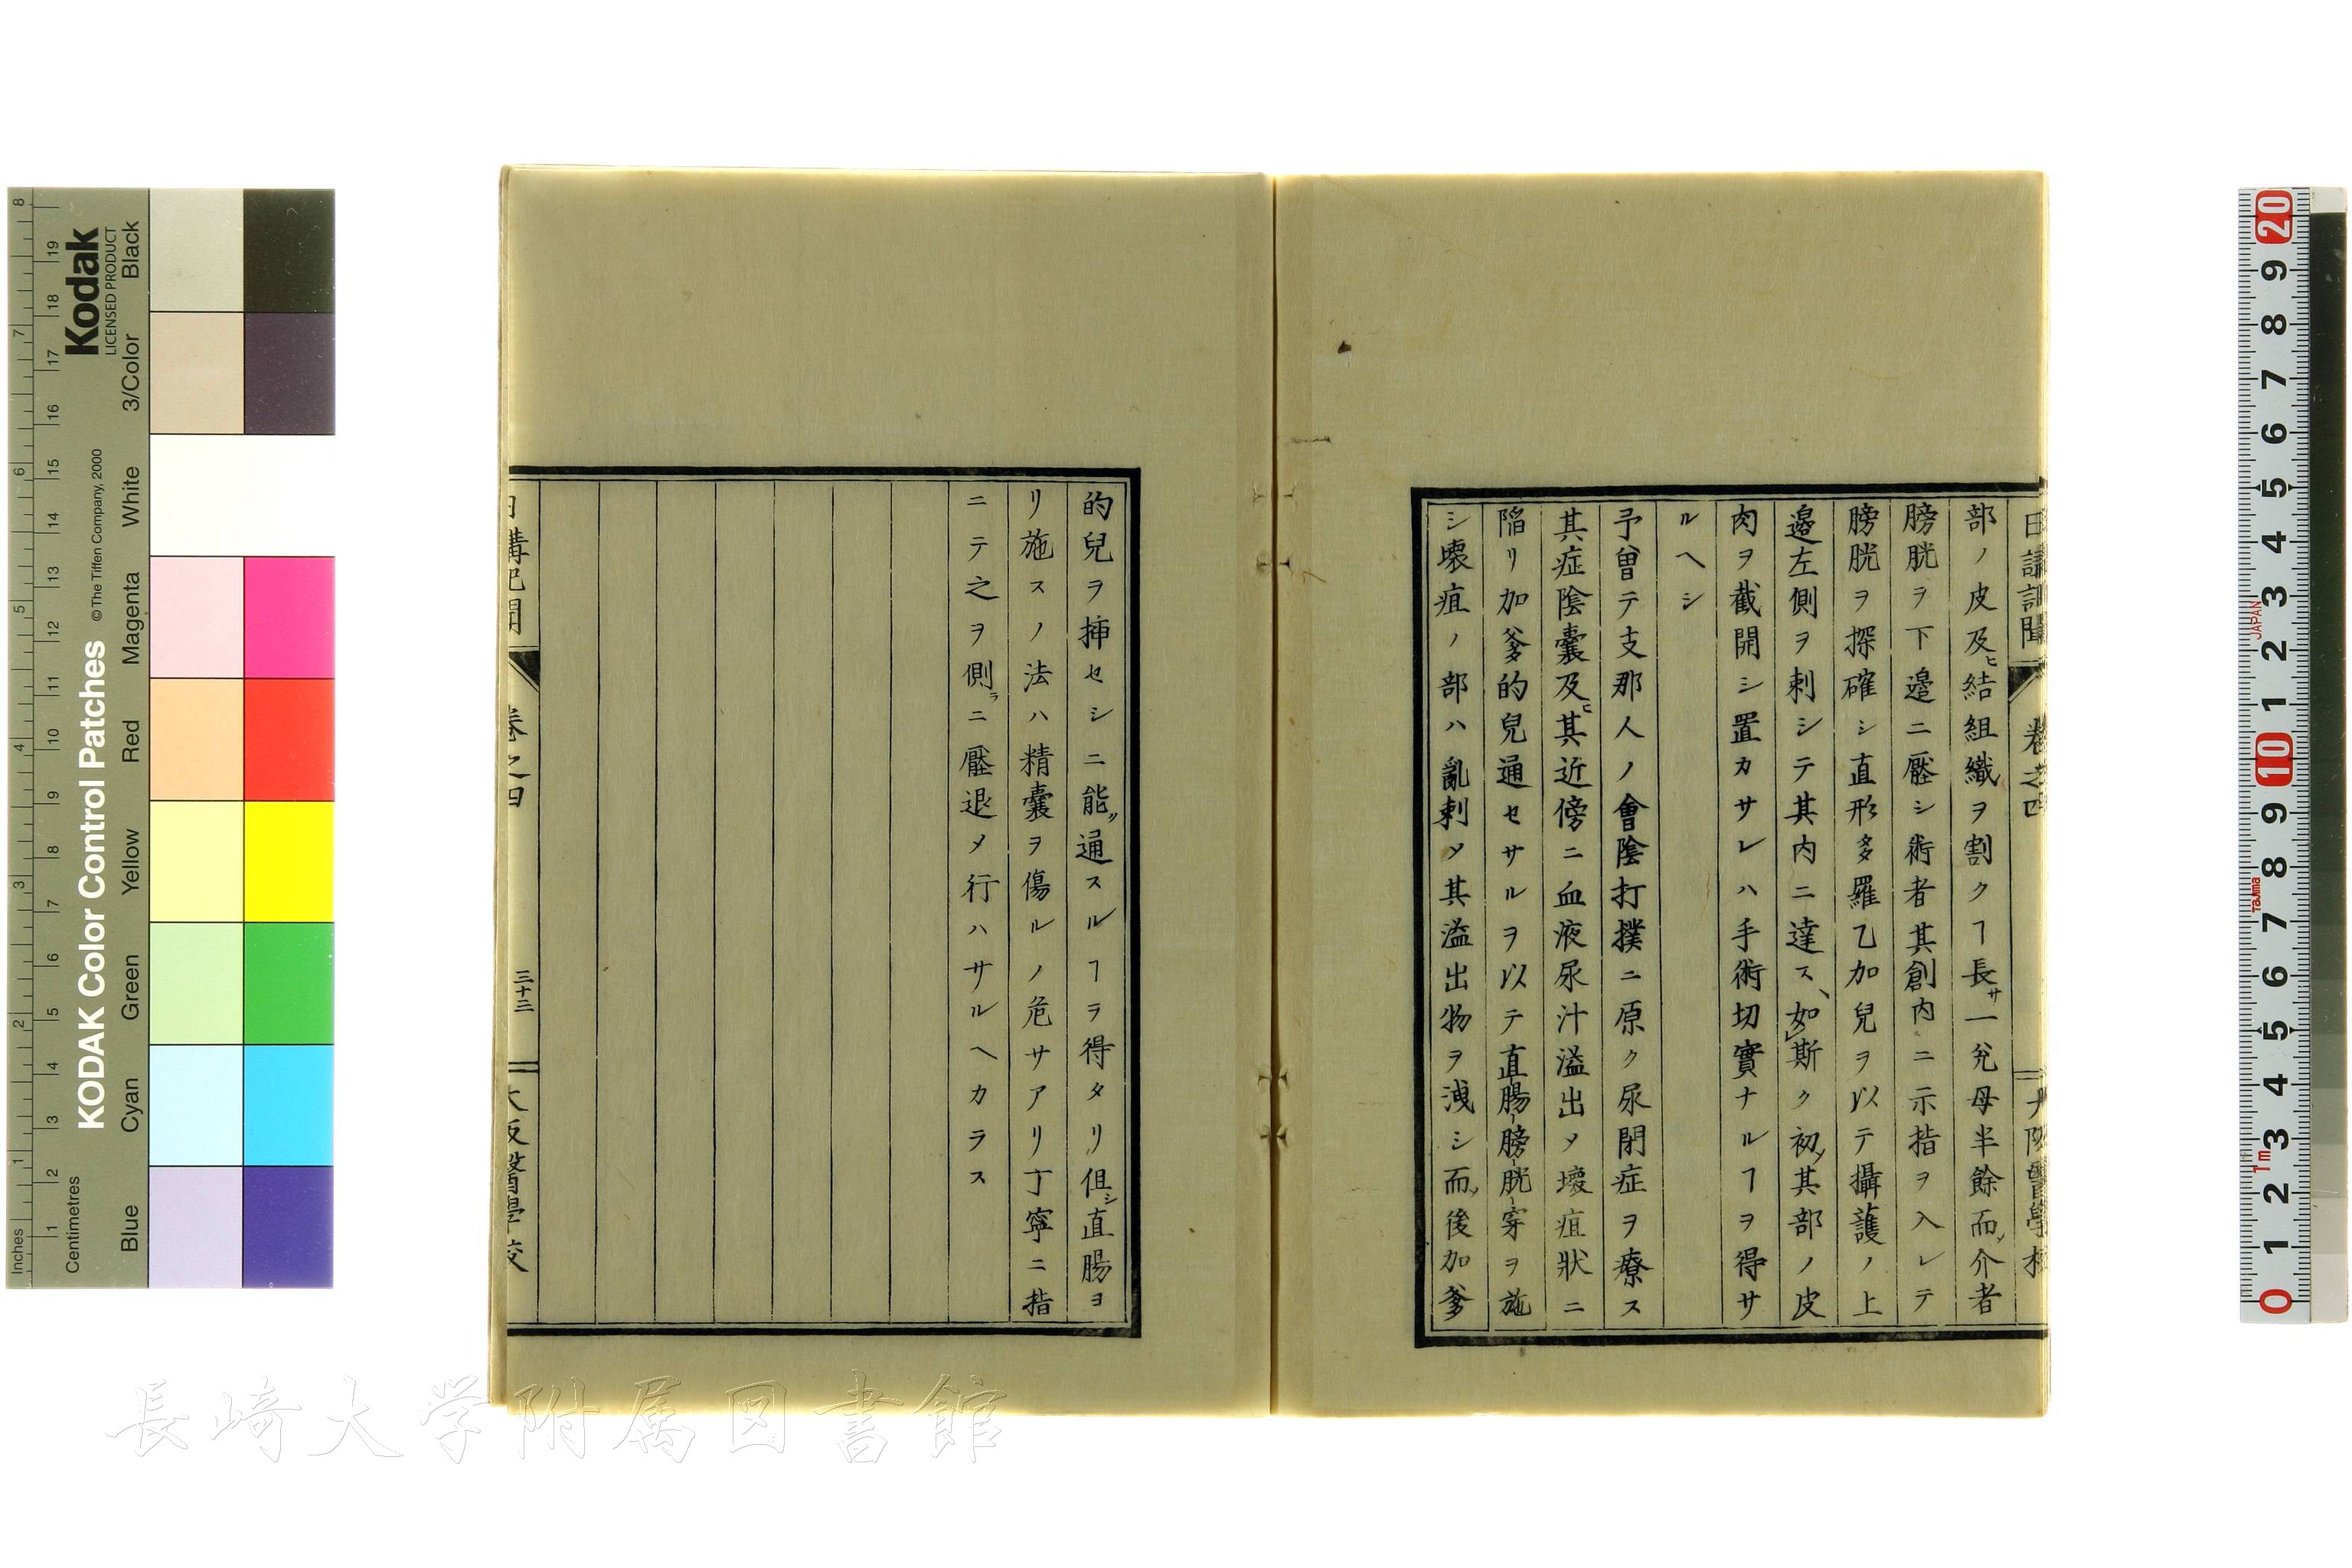 日講記聞 卷之四 大阪醫學校
部ノ皮及ヒ結組織ヲ割クヿ長サ一兊母半餘而ノ介者
膀胱ヲ下邊ニ壓シ術者其創内ニ示指ヲ入レテ
膀胱ヲ探確シ直形多羅乙加兒ヲ以テ攝護ノ上
邊左側ヲ刺シテ其内ニ達ス、如斯ク初メ其部ノ皮
肉ヲ截開シ置カサレハ手術切實ナルヿヲ得サ
ルヘシ
予曾テ支那人ノ會陰打撲ニ原ク尿閉症ヲ療ス
其症陰囊及ヒ其近傍ニ血液尿汁溢出メ壞疽狀ニ
陷リ加爹的兒通セサルヲ以テ直腸膀胱穿ヲ施
シ壞疽ノ部ハ亂刺メ其溢出物ヲ洩シ而ノ後加爹
的兒ヲ揷セシニ能ク通スルヿヲ得タリ但シ直腸ヨ
リ施スノ法ハ精囊ヲ傷ルノ危サアリ丁寧ニ指
ニテ之ヲ側ラニ壓退メ行ハサルヘカラス
日講記聞 卷之四 三十三 大阪醫學校
長崎大学附属図書館
Kodak
LICENSED PRODUCT
KODAK Color Control Patches
© The Tiffen Company, 2000
Inches
Centimetres
Blue Cyan Green Yellow Red Magenta White 3/Color Black
JAPAN
Tajima